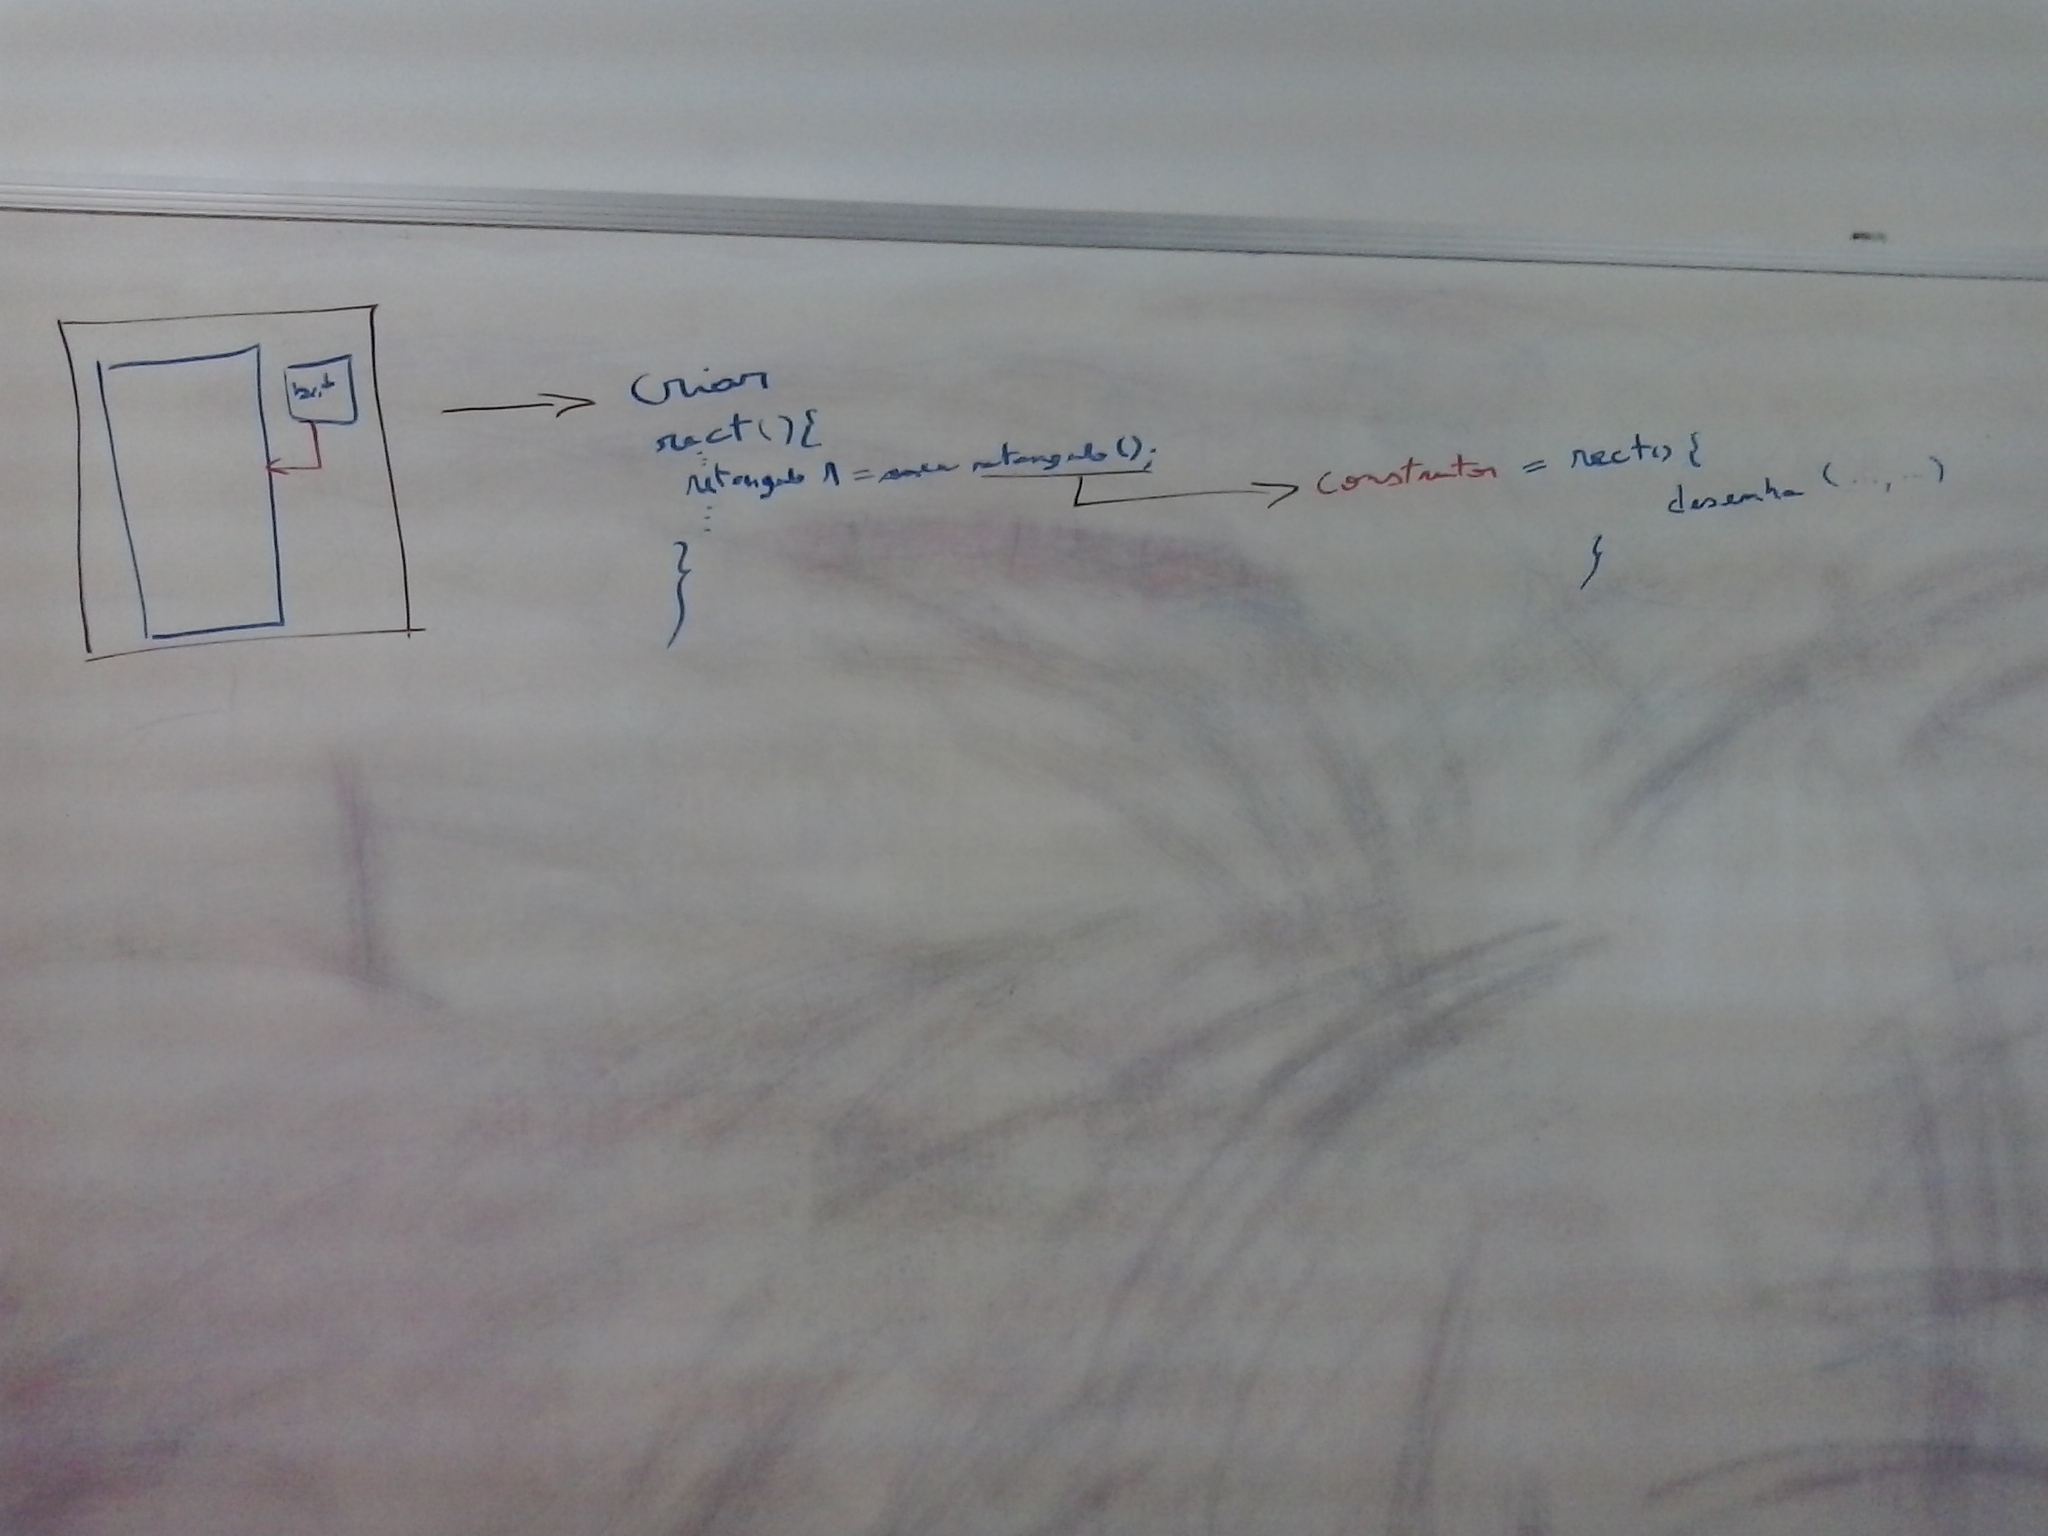 Criar
rect(){
retangulo 1 = new retangulo();
}
Construtor = rect() {
desenha (...,...)
}